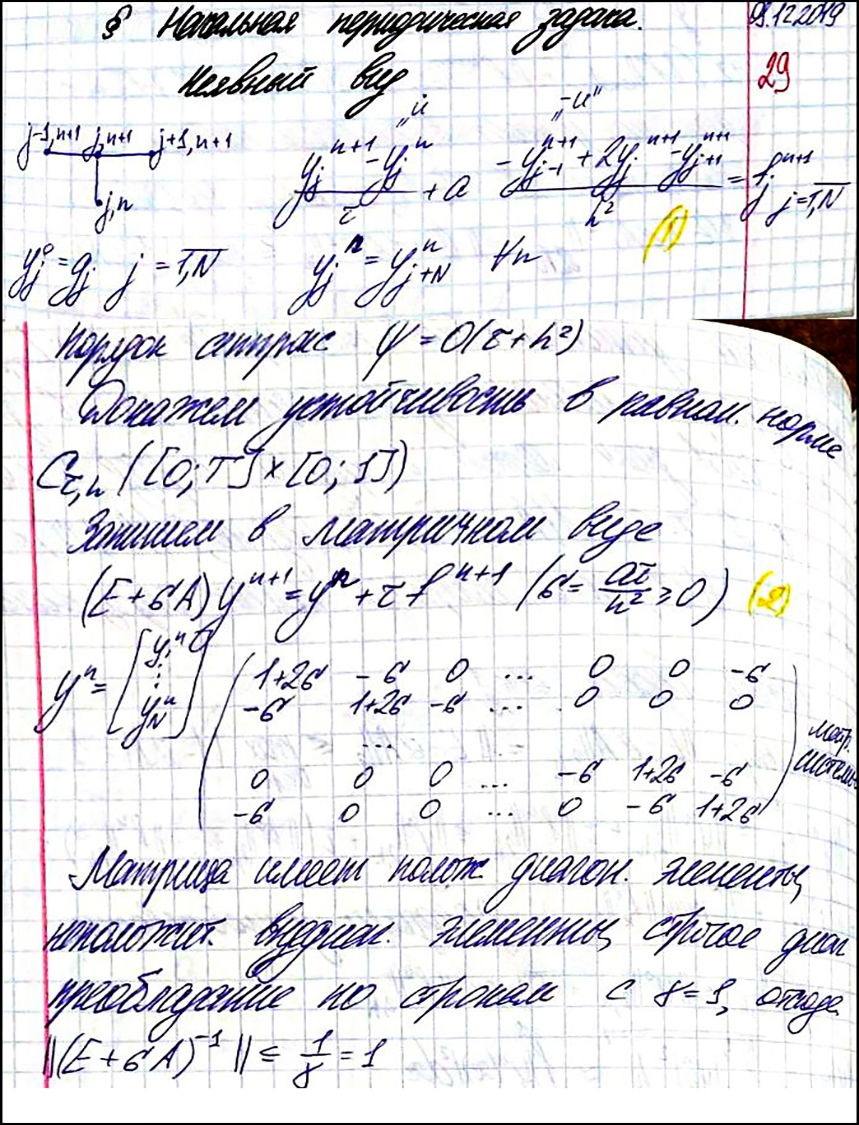 § Начальная периодическая задача. 09.12.2019
Неявный вид 29
"u̇" "-u''"
j-1,n+1 j,n+1 j+1,n+1
j,n
(y_j^{n+1} - y_j^n)/τ + a (-y_{j-1}^{n+1} + 2y_j^{n+1} - y_{j+1}^{n+1})/h² = f_j^{n+1} j=1,N
(1)
y_j^0 = g_j j = 1,N y_j^n = y_{j+N}^n ∀n
Порядок аппрокс ψ = O(τ+h²)
Докажем устойчивость в равном. норме
C_{τ,h} ([0;T]×[0;1])
Запишем в матричном виде
(E+σA) y^{n+1} = y^n + τ f^{n+1} (σ = aτ/h² ≥ 0) (2)
y^n = [y_1^n ⋮ y_N^n]
1+2σ -σ 0 ... 0 0 -σ
-σ 1+2σ -σ ... 0 0 0
...
0 0 0 ... -σ 1+2σ -σ
-σ 0 0 ... 0 -σ 1+2σ
матр. системы
Матрица имеет полож диагон. элементы,
неположит. внедиаг. элементы, строгое диаг
преобладание по строкам с γ=1, отсюда
||(E+σA)^{-1}|| ≤ 1/γ = 1